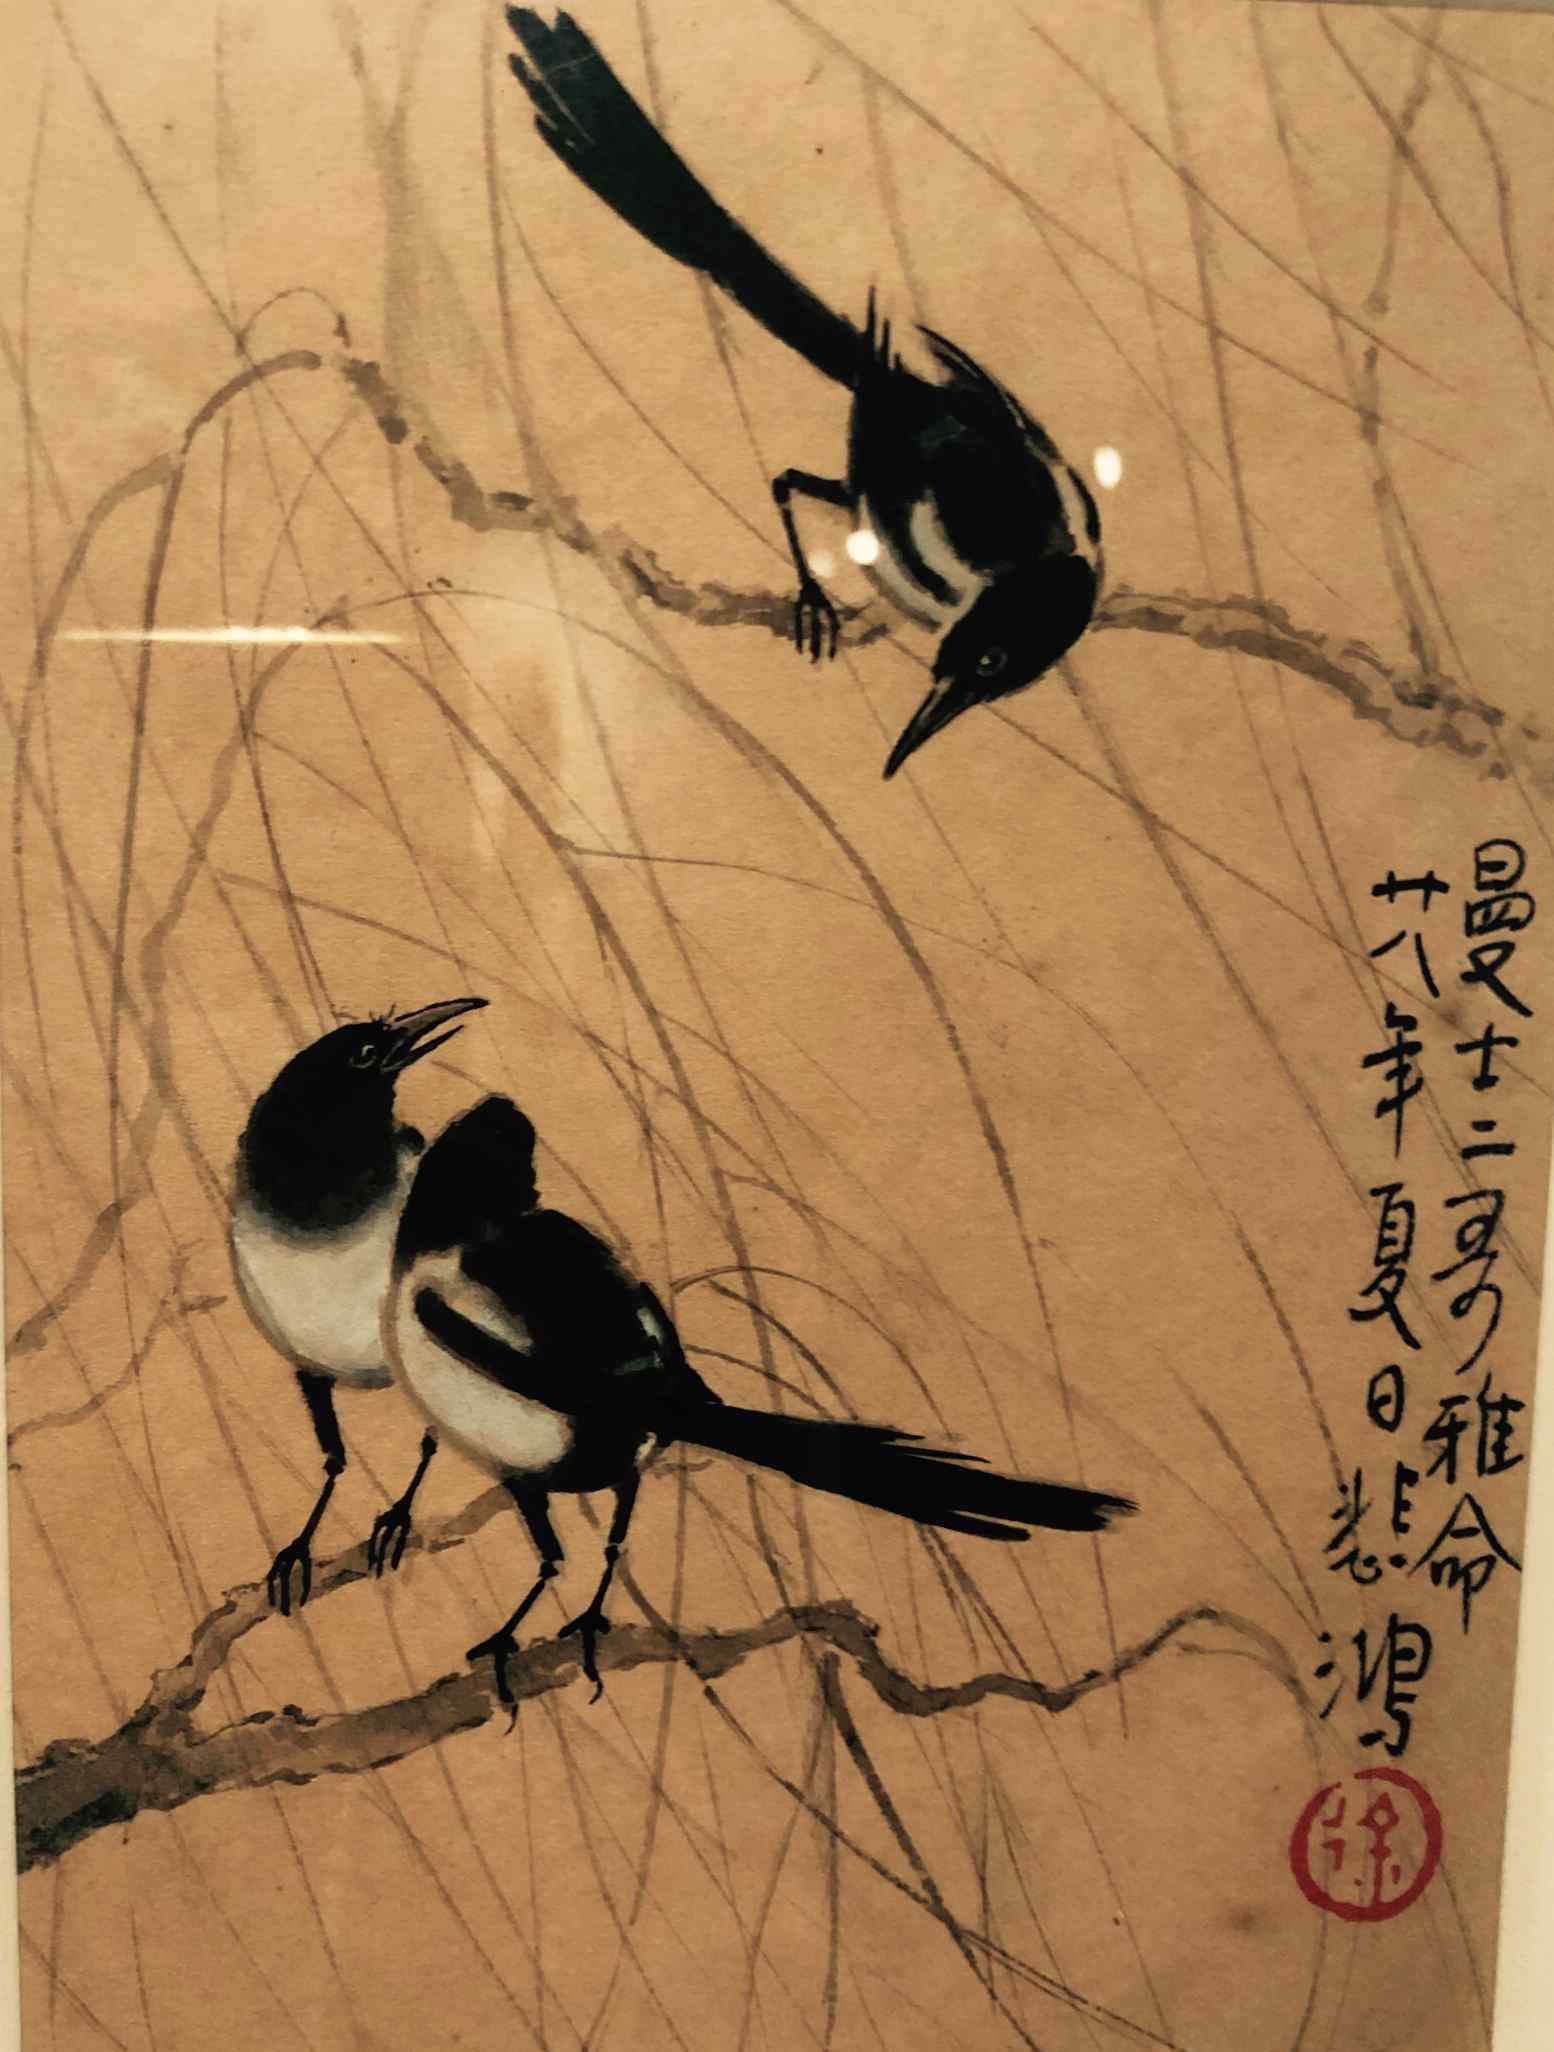 曼士二哥雅命
廿八年夏日悲鴻
徐